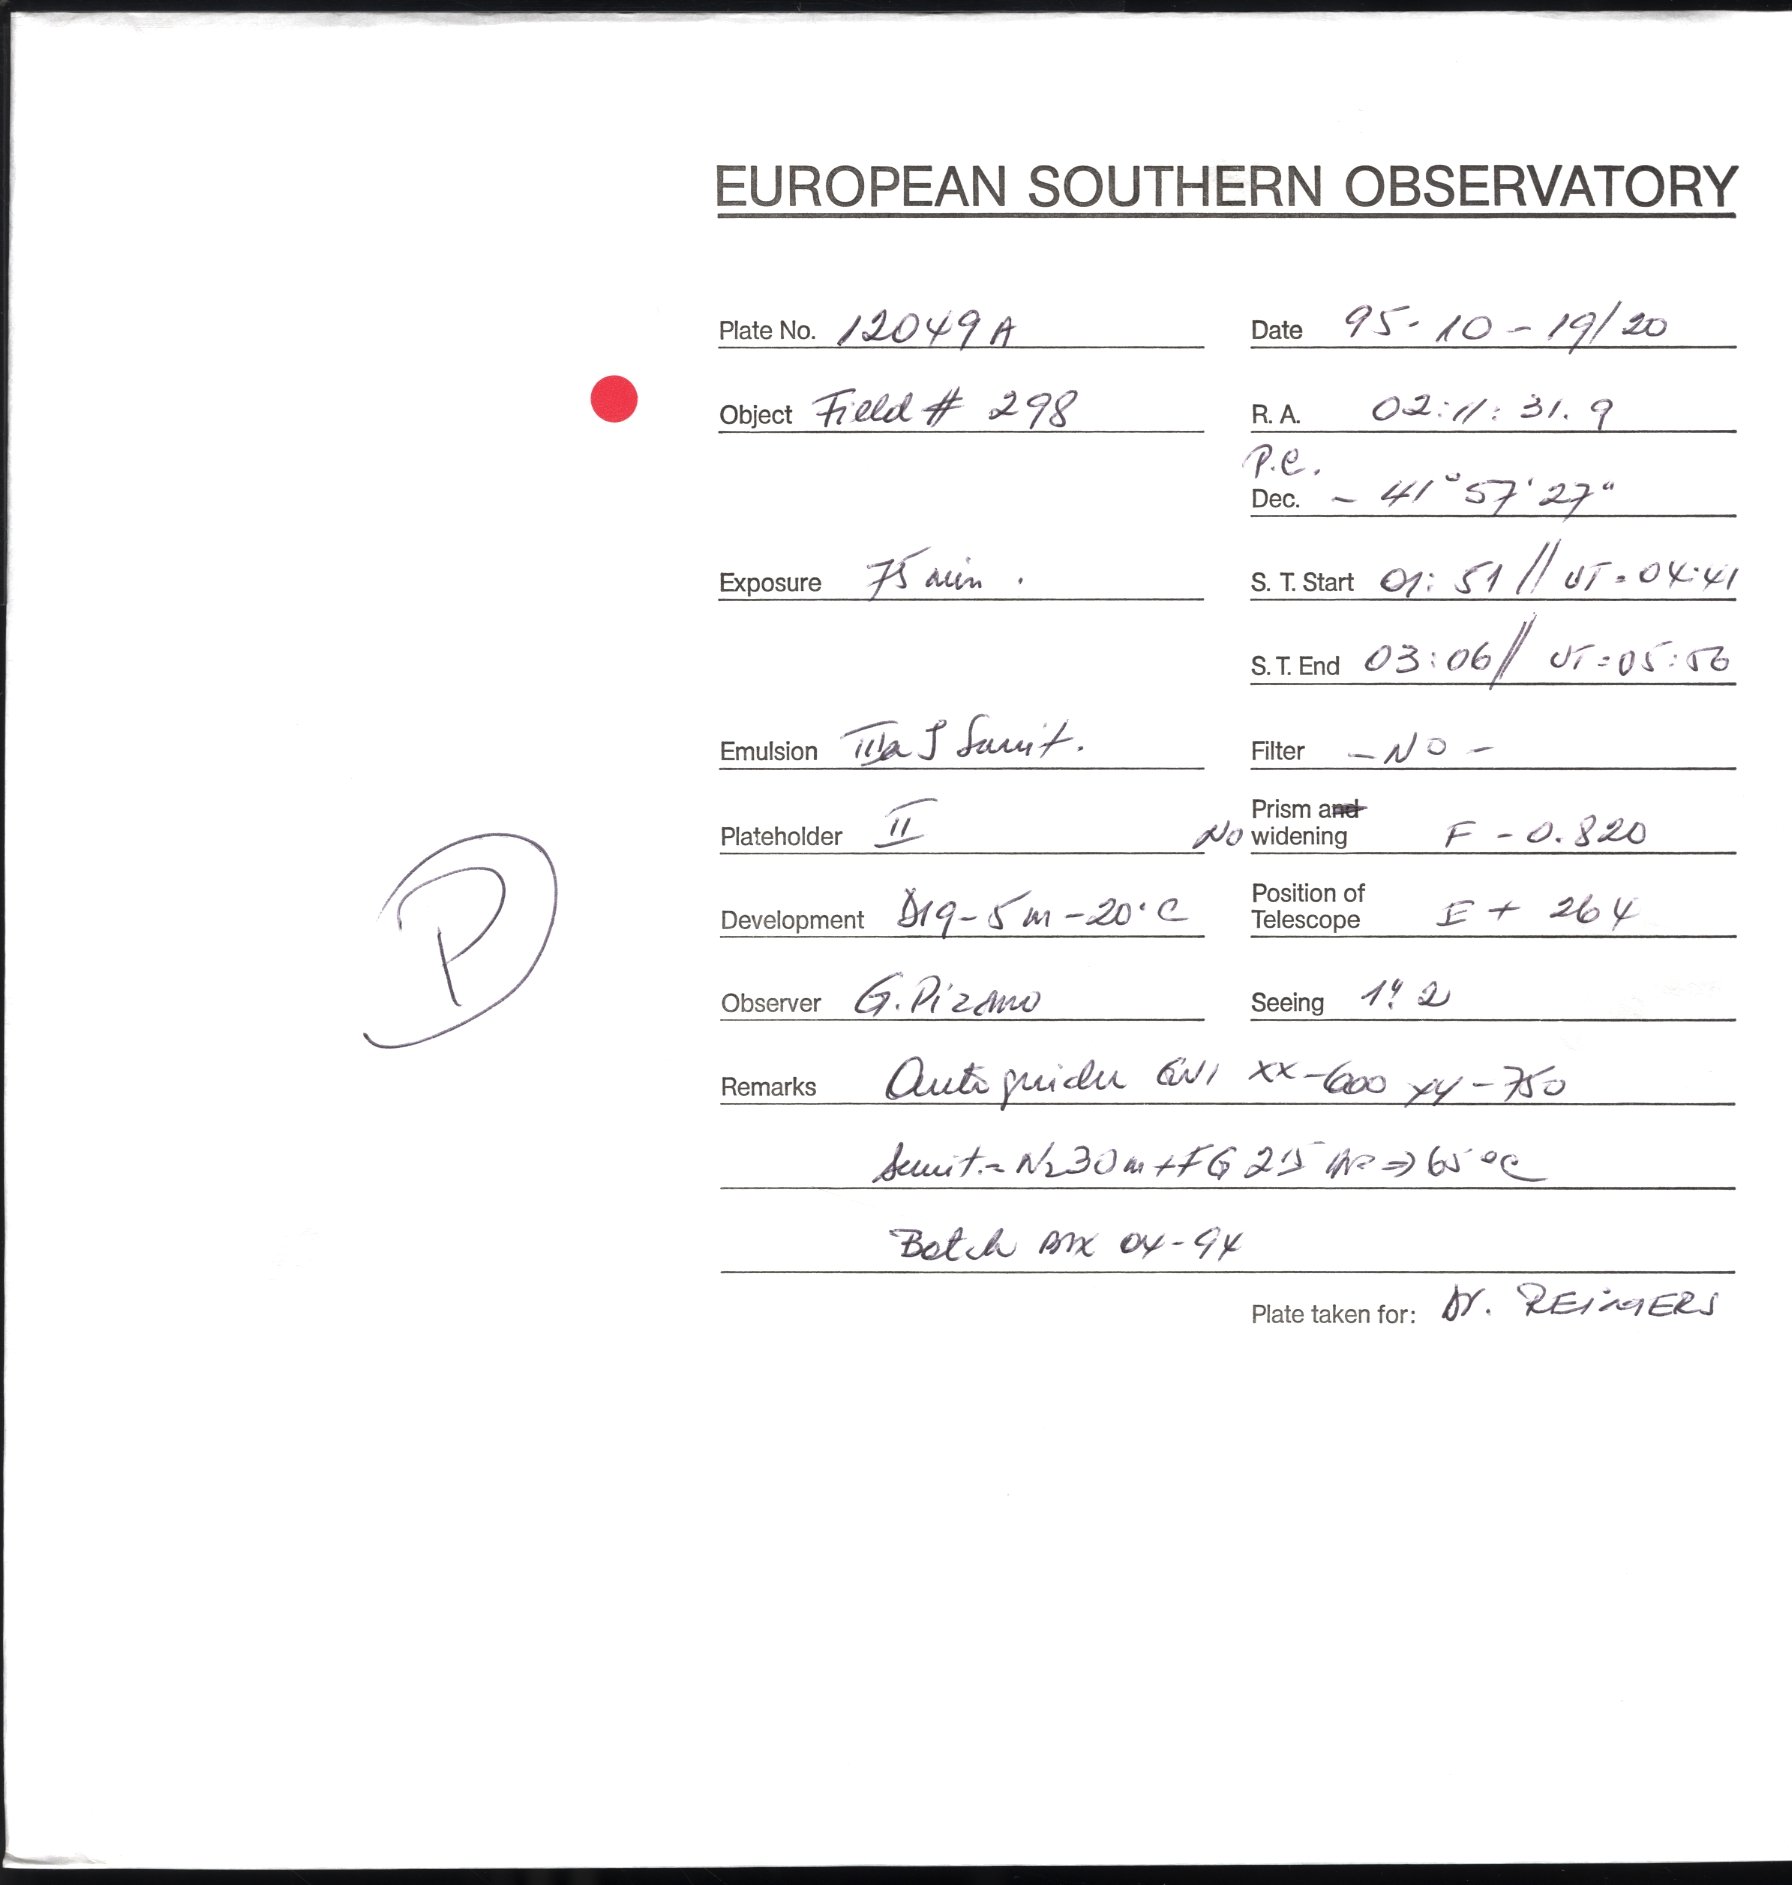 EUROPEAN SOUTHERN OBSERVATORY
Plate No. 12049A Date 95-10-19/20
Object Field # 298 R. A. 02:11:31.9
P.C.
Dec. - 41°57'27"
Exposure 75 min. S. T. Start 01:51 // UT=04:41
S. T. End 03:06 // UT=05:56
Emulsion IIIa J Sensit. Filter - NO -
Plateholder II No Prism and widening F-0.820
Development D19-5m-20°C Position of Telescope E + 264
Observer G. Pizarro Seeing 1"2
P
Remarks Autoguider XX-600 YY-750
Sensit.= N2 30m + FG 215 => 65°C
Batch 04-94
Plate taken for: Dr. REIMERS